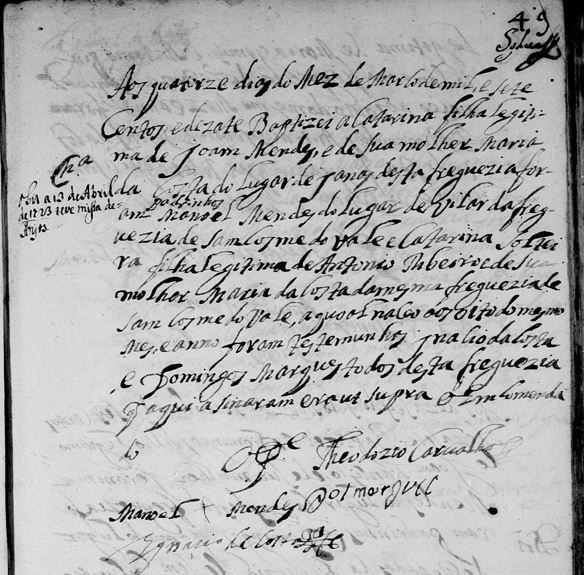 49
Sylva
Aos quatorze dias do Mez de Marso de mil, e sete
Centos, e dezate Baptizei a Catarina filha legiti-
ma de Joam Mendes, e de sua molher Maria
Cna
da Costa do lugar de Janas desta freguezia for-
Padrinhos
am Manoel Mendes do lugar de Vilar da freg-
uezia de Sam Cosme do Vale e Catarina Soltei
ra filha legitima de Antonio Ribeiro e de sua
molher Maria da Costa da mesma freguezia de
Sam Cosme do Vale, a quoal naceo aos oito do mesmo
Mes, e anno foram testemunhas Inacio da Costa
e Domingos Marques todos desta freguezia
q aqui asinaram era ut supra O Emcomenda
do
O Pe Theodozio Carvalho
Manoel + Mendes Do1 marques
Ignacio da Costa
obiit a 13 de Abril
de 1723 teve missa de